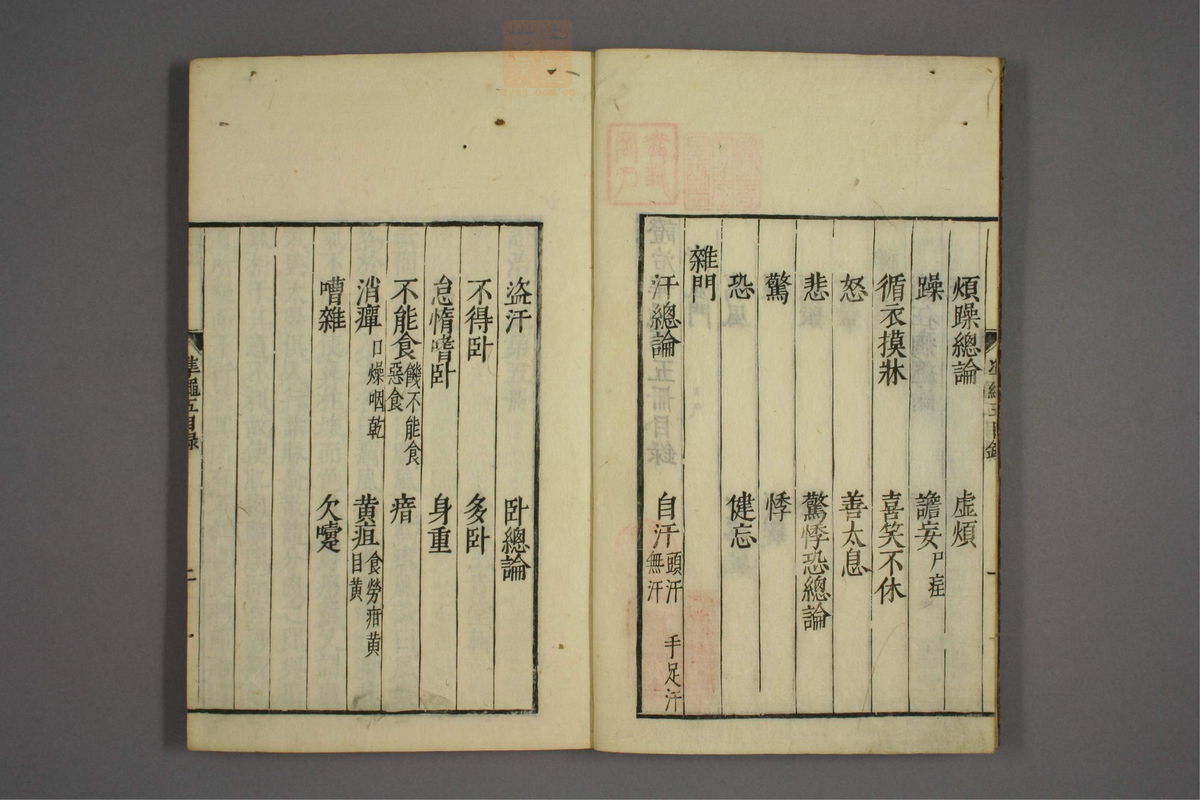 煩躁總論 虛煩
躁 譫妄 尸疰
循衣摸牀 喜笑不休
怒 善太息
悲 驚悸恐總論
驚 悸
恐 健忘
雜門
汗總論 自汗 頭汗 手足汗 無汗
盜汗 臥總論
不得臥 多臥
怠惰嗜臥 身重
不能食 饑不能食 惡食 瘖
消癉 口燥咽乾 黄疸 食勞疳黄 目黄
嘈雜 欠嚏
準繩五目錄